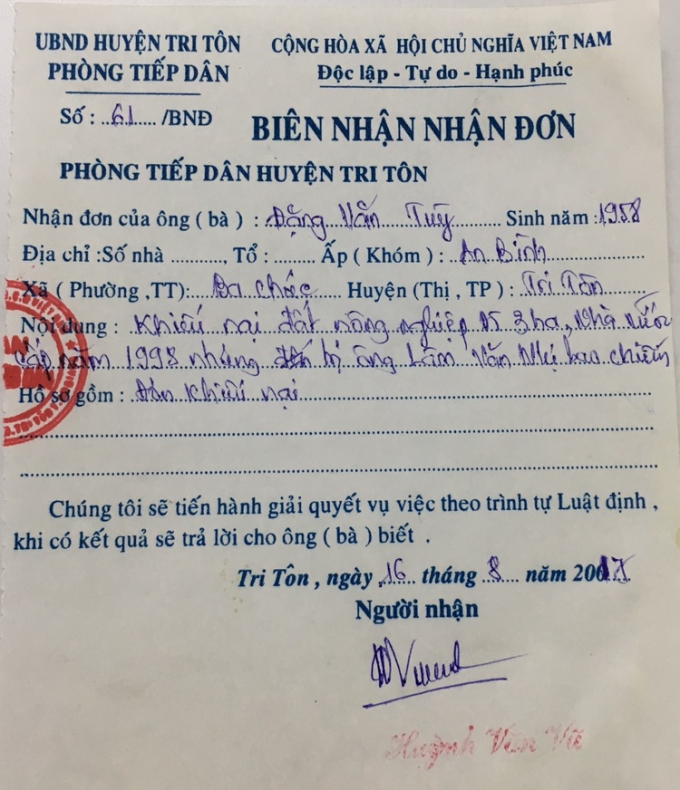 UBND HUYỆN TRI TÔN
PHÒNG TIẾP DÂN
CỘNG HÒA XÃ HỘI CHỦ NGHĨA VIỆT NAM
Độc lập - Tự do - Hạnh phúc
Số : 61 /BNĐ
BIÊN NHẬN NHẬN ĐƠN
PHÒNG TIẾP DÂN HUYỆN TRI TÔN
Nhận đơn của ông ( bà ) : Đặng Văn Tuỹ Sinh năm : 1958
Địa chỉ :Số nhà ..........., Tổ : ........ Ấp ( Khóm ) : An Bình
Xã ( Phường ,TT): Ba Chúc Huyện (Thị , TP ) : Tri Tôn
Nội dung : Khiếu nại đất nông nghiệp 3ha, Nhà nước
cấp năm 1998 nhưng bị ông Lâm Văn bao chiếm
Hồ sơ gồm : Đơn khiếu nại
Chúng tôi sẽ tiến hành giải quyết vụ việc theo trình tự Luật định ,
khi có kết quả sẽ trả lời cho ông ( bà ) biết .
Tri Tôn , ngày 16 tháng 8 năm 2017
Người nhận
Huỳnh Văn Vũ